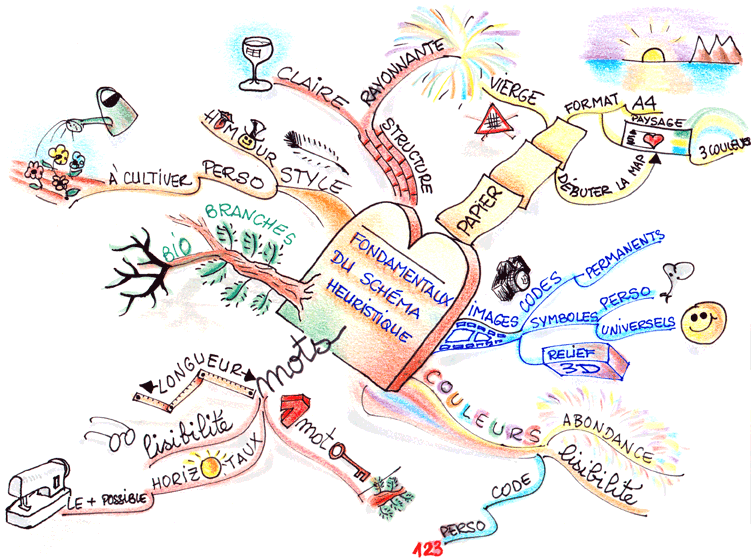 FONDAMENTAUX
DU SCHÉMA
HEURISTIQUE
PAPIER
VIERGE
FORMAT
A4
PAYSAGE
DÉBUTER LA MAP
3 COULEURS
IMAGES
CODES
PERMANENTS
SYMBOLES
PERSO
UNIVERSELS
RELIEF
3D
COULEURS
ABONDANCE
lisibilité
CODE
PERSO
mots
1 mot
LONGUEUR
lisibilité
HORIZ TAUX
LE + POSSIBLE
BRANCHES
BIO
STYLE
PERSO
HUMOUR
À CULTIVER
STRUCTURE
RAYONNANTE
CLAIRE
123